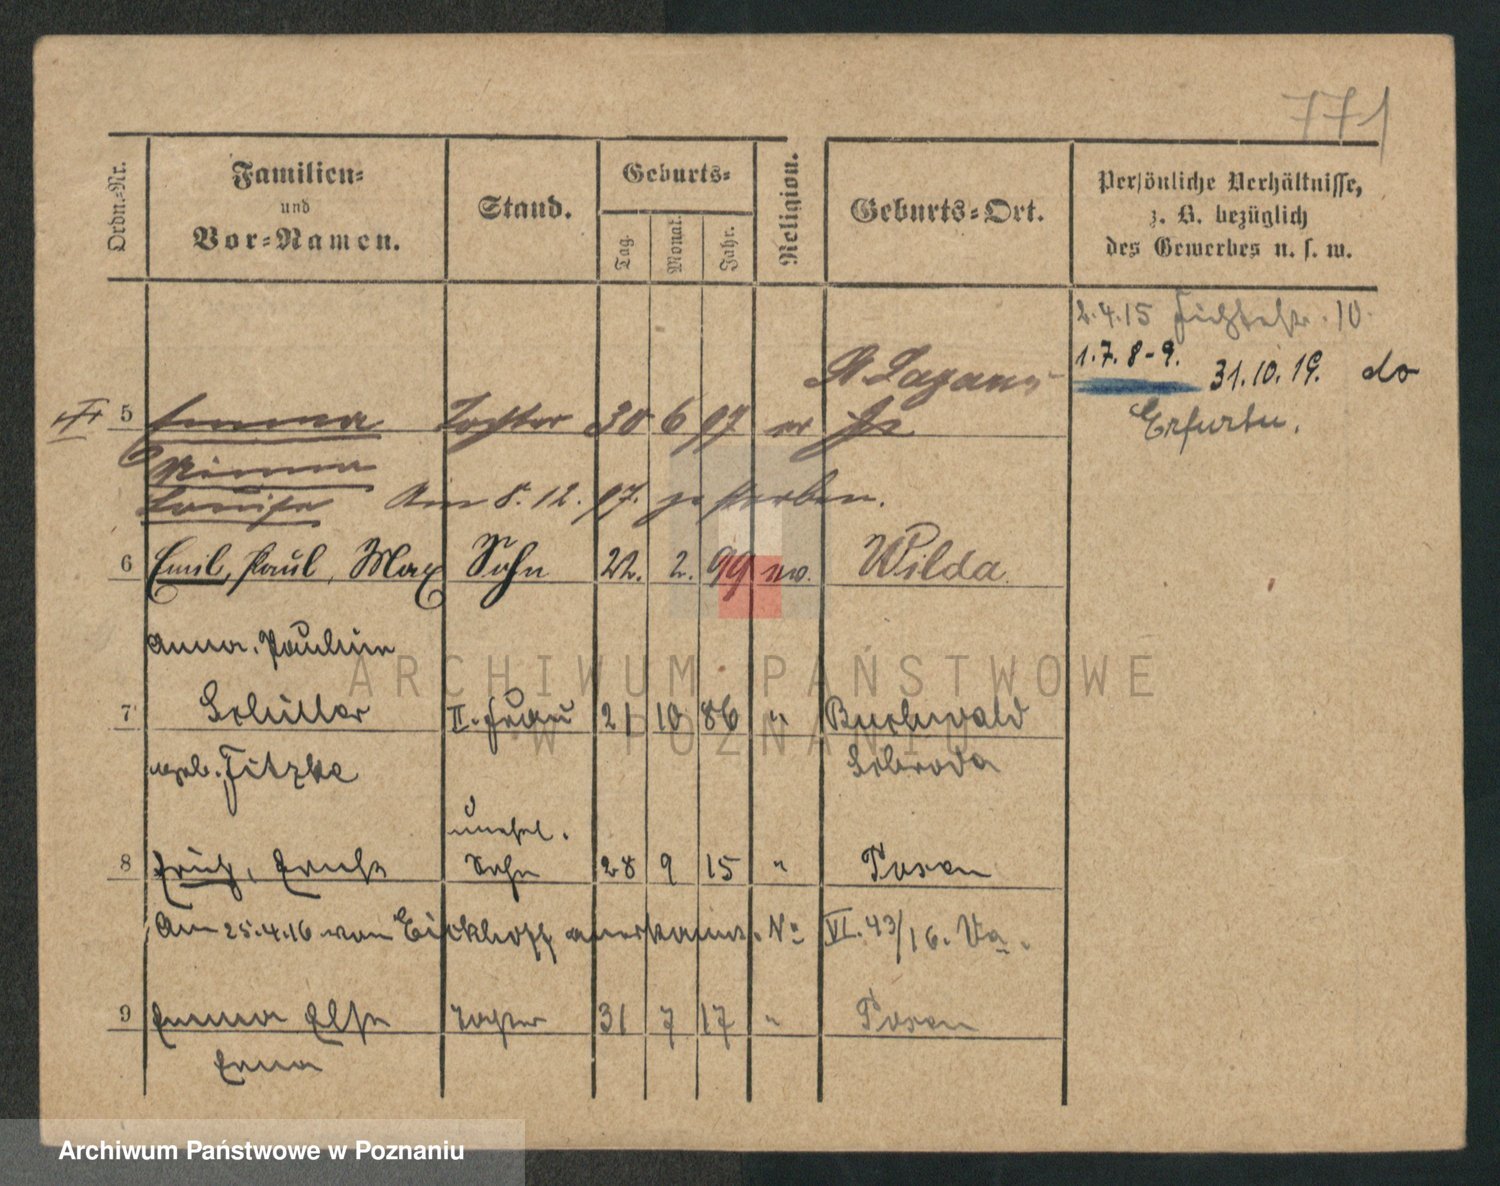 771
Ordn.-Nr.
Familien-
und
Vor-Namen.
Stand.
Geburts-
Tag.
Monat.
Jahr.
Religion.
Geburts-Ort.
Persönliche Verhältnisse,
z. B. bezüglich
des Gewerbes u. s. w.
2.4.15 Fichtestr. 10.
1.7. 8-9. 31.10.19. do
Erfurt
St. Lazarus
5 Emma Tochter 30 6 97 ev
Minna
Louise Am 8.12.97. gestorben.
6 Emil, Paul, Max Sohn 22. 2. 99 ev. Wilda
Anna. Pauline
7 Schüller II. Frau 21 10 86 " Buchwald
geb. Fitzke Schroda
unehel.
8 Fritz, Erich Sohn 28 9 15 " Posen
Am 25.4.16 von Eickhoff anerkannt. No VI. 43/16. Va.
9 Emma Else Tochter 31 7 17 " Posen
Erna
ARCHIWUM PAŃSTWOWE
W POZNANIU
Archiwum Państwowe w Poznaniu